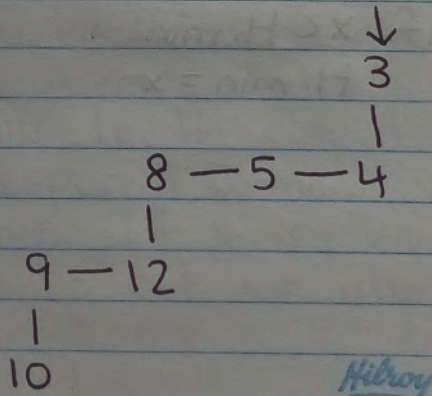 ↓
3
|
8 — 5 — 4
|
9 — 12
|
10
Hilroy